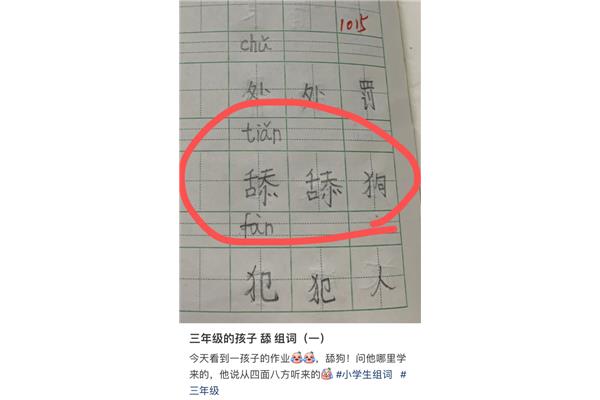 1015
chǔ
处 处 罚
tiǎn
舔 舔 狗
fàn
犯 犯 人
三年级的孩子 舔 组词（一）
今天看到一孩子的作业🤡🤡，舔狗！问他哪里学
来的，他说从四面八方听来的🤡 #小学生组词 #
三年级